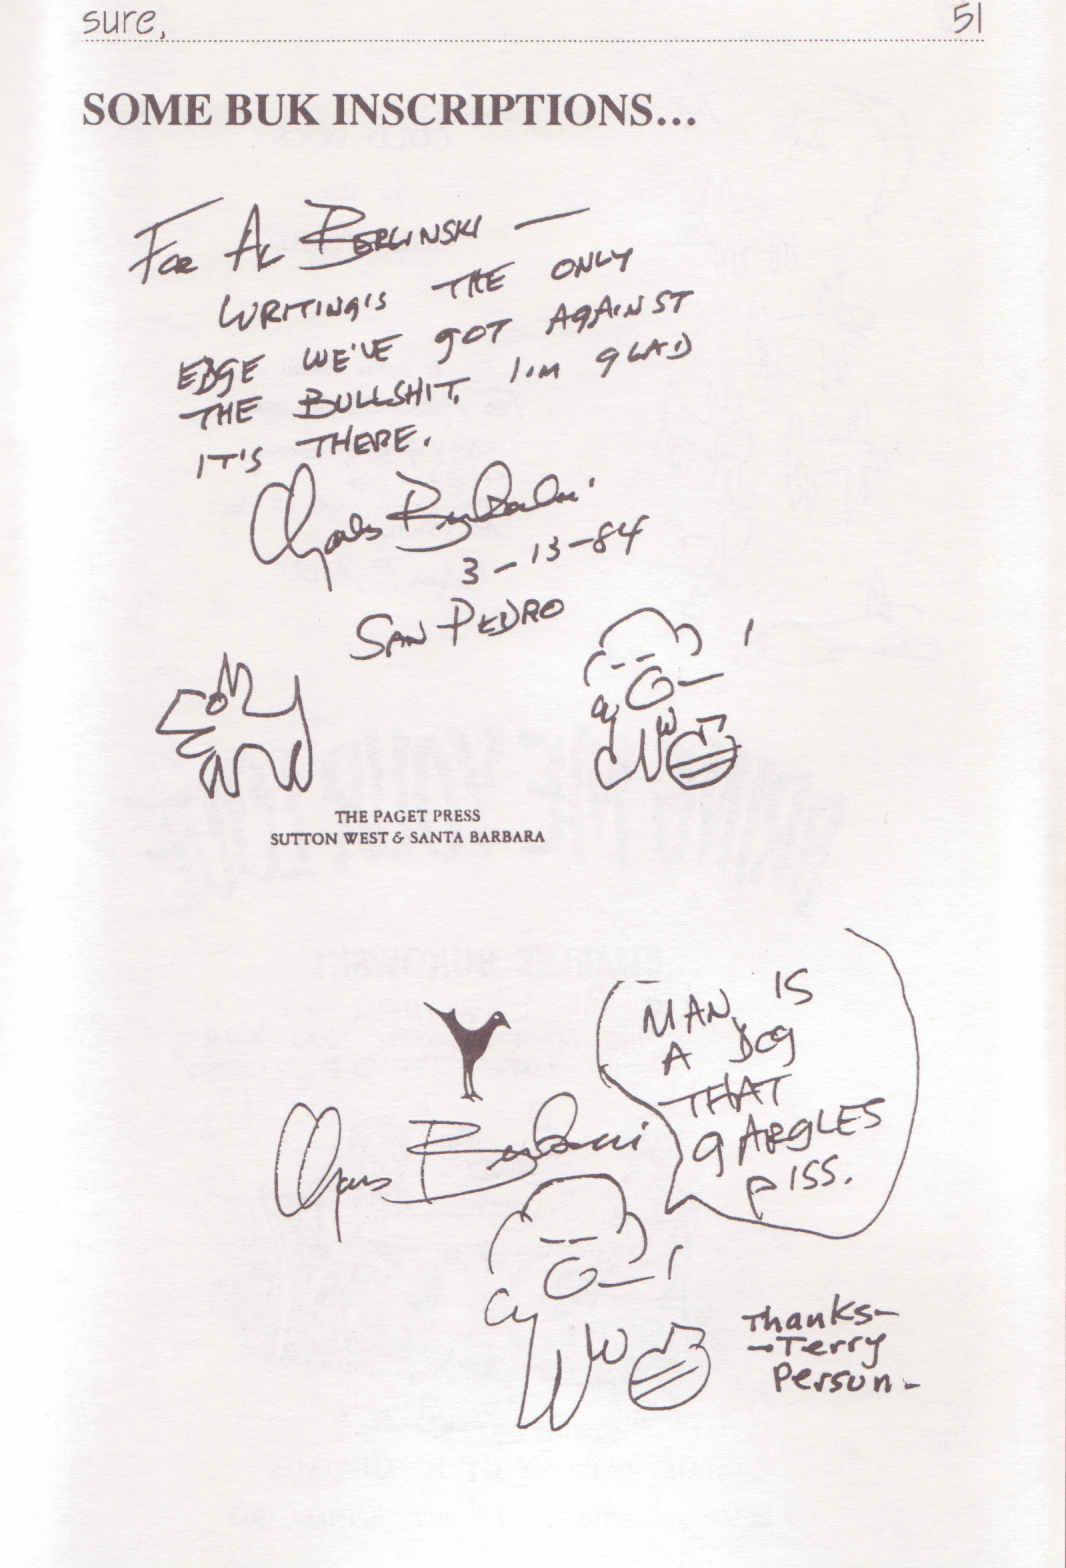 sure, 51
SOME BUK INSCRIPTIONS...
FOR AL BERLINSKI —
WRITING'S THE ONLY
EDGE WE'VE GOT AGAINST
THE BULLSHIT. I'M GLAD
IT'S THERE.
Charles Bukowski
3-13-84
SAN PEDRO
THE PAGET PRESS
SUTTON WEST & SANTA BARBARA
MAN IS
A DOG
THAT
GARGLES
PISS.
Charles Bukowski
Thanks-
-Terry
Person-